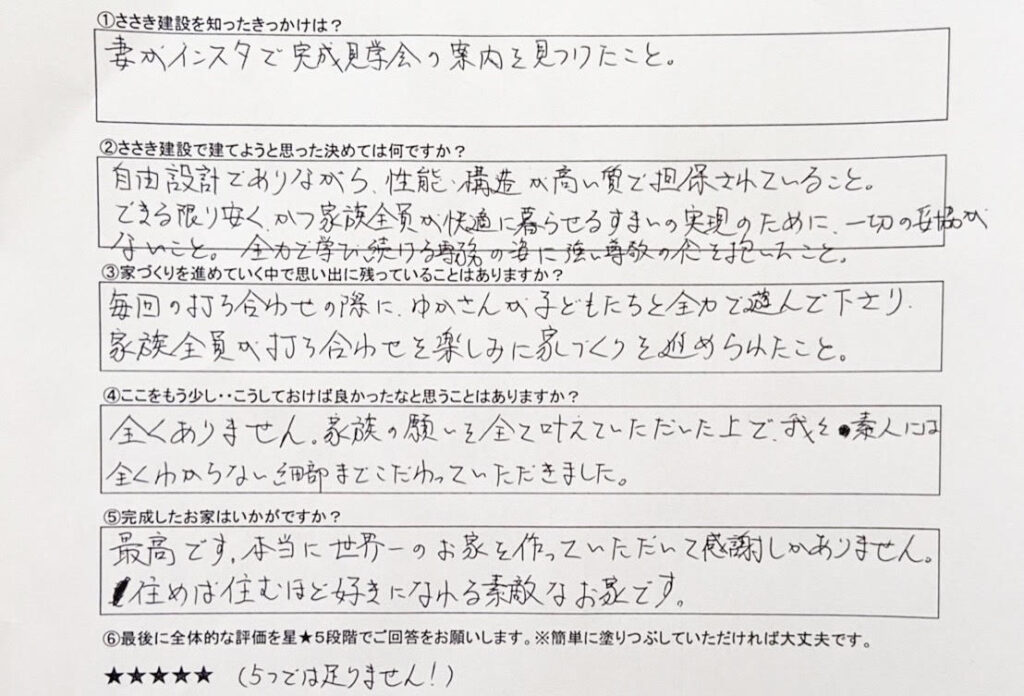 ①ささき建設を知ったきっかけは？
妻がインスタで完成見学会の案内を見つけたこと。
②ささき建設で建てようと思った決めては何ですか？
自由設計でありながら、性能・構造が高い質で担保されていること。
できる限り安く、かつ家族全員が快適に暮らせるすまいの実現のために、一切の妥協が
ないこと。全力で学び続ける専務の姿に強い尊敬の念を抱いたこと。
③家づくりを進めていく中で思い出に残っていることはありますか？
毎回の打ち合わせの際に、ゆかさんが子どもたちと全力で遊んで下さり、
家族全員が打ち合わせを楽しみに家づくりを進められたこと。
④ここをもう少し‥こうしておけば良かったなと思うことはありますか？
全くありません。家族の願いを全て叶えていただいた上で、我々素人には
全くわからない細部までこだわっていただきました。
⑤完成したお家はいかがですか？
最高です。本当に世界一のお家を作っていただいて感謝しかありません。
住めば住むほど好きになれる素敵なお家です。
⑥最後に全体的な評価を星★5段階でご回答をお願いします。※簡単に塗りつぶしていただければ大丈夫です。
★★★★★（5つでは足りません！）